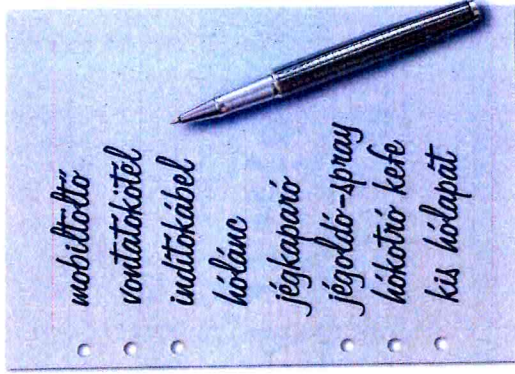 mobiltöltő
vontatókötél
indítókábel
hólánc
jégkaparó
jégoldó-spray
hókotró kefe
kis hólapát